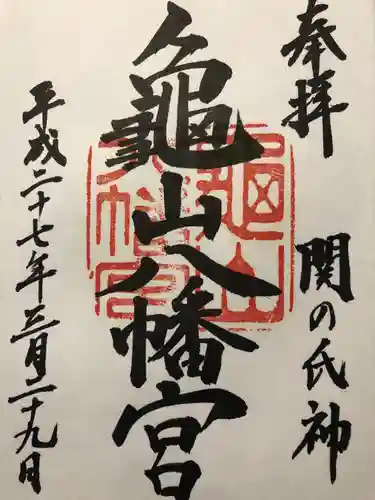 奉拝
関の氏神
龜山八幡宮
龜山八幡宮
平成二十七年三月二十九日